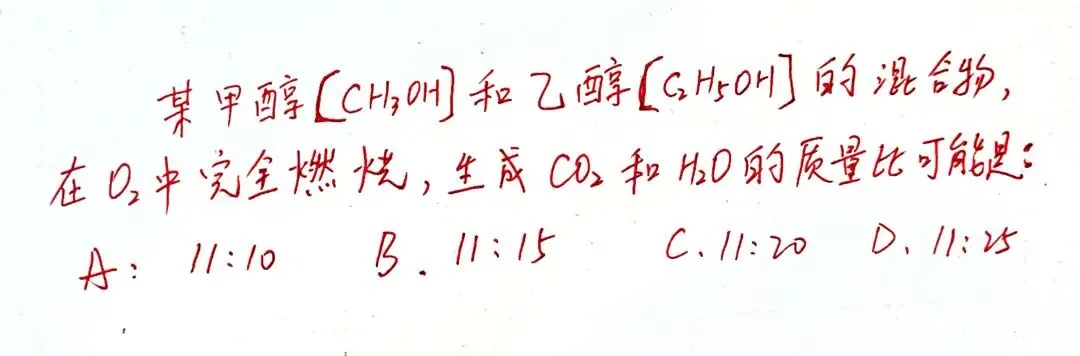 某甲醇[CH₃OH]和乙醇[C₂H₅OH]的混合物,
在O₂中完全燃烧,生成CO₂和H₂O的质量比可能是:
A: 11:10 B. 11:15 C. 11:20 D. 11:25